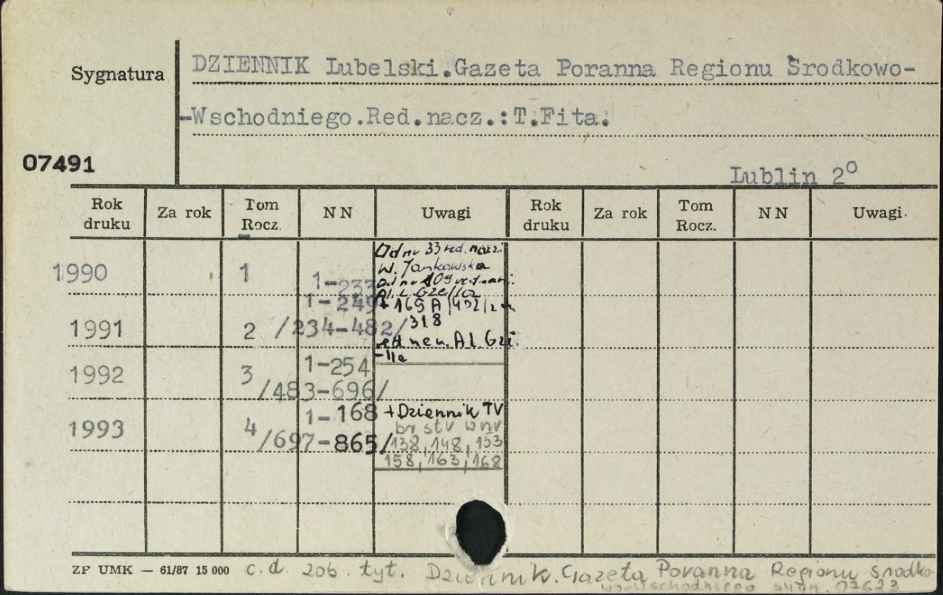 Sygnatura
DZIENNIK Lubelski.Gazeta Poranna Regionu Środkowo-
-Wschodniego.Red.nacz.:T.Fita.
07491
Lublin 2°
Rok druku Za rok Tom Rocz. NN Uwagi Rok druku Za rok Tom Rocz. NN Uwagi.
Od nr 33 red. nacz:
W. Jankowska
1990 1 1-233
od nr 109 red. nacz:
Al. L. Gzella
1-249 + 169 A
1991 2 /234-482/ 318
red nacz. Al. Gze-
-lla
1992 3 1-254
/483-696/
1993 4 1-168 +Dziennik TV
br str w nr
/697-865/ 138, 148, 153
158, 163, 168
ZP UMK — 61/87 15 000 c.d. zob. tyt. Dziennik. Gazeta Poranna Regionu środko-
wowschodniego sygn.